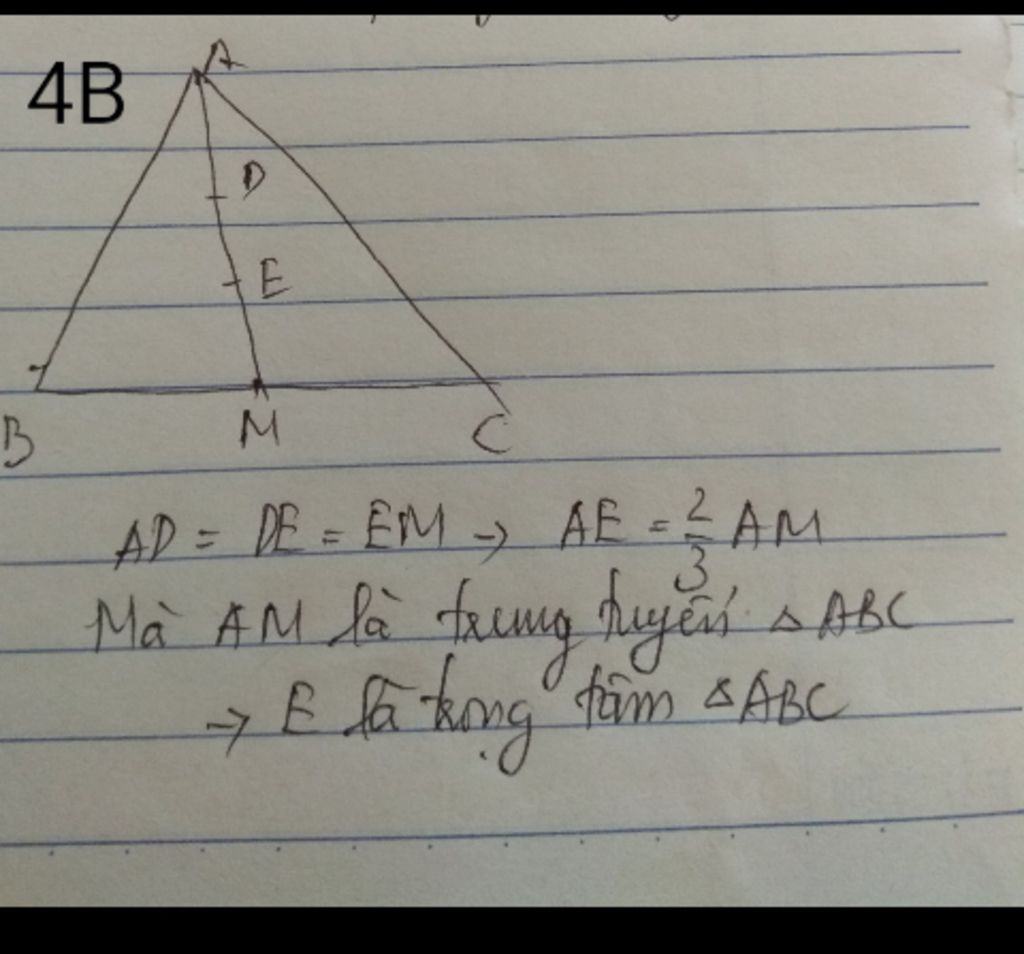 4B
A
D
E
B M C
AD = DE = EM → AE = 2/3 AM
Mà AM là trung tuyến △ABC
→ E là trọng tâm △ABC